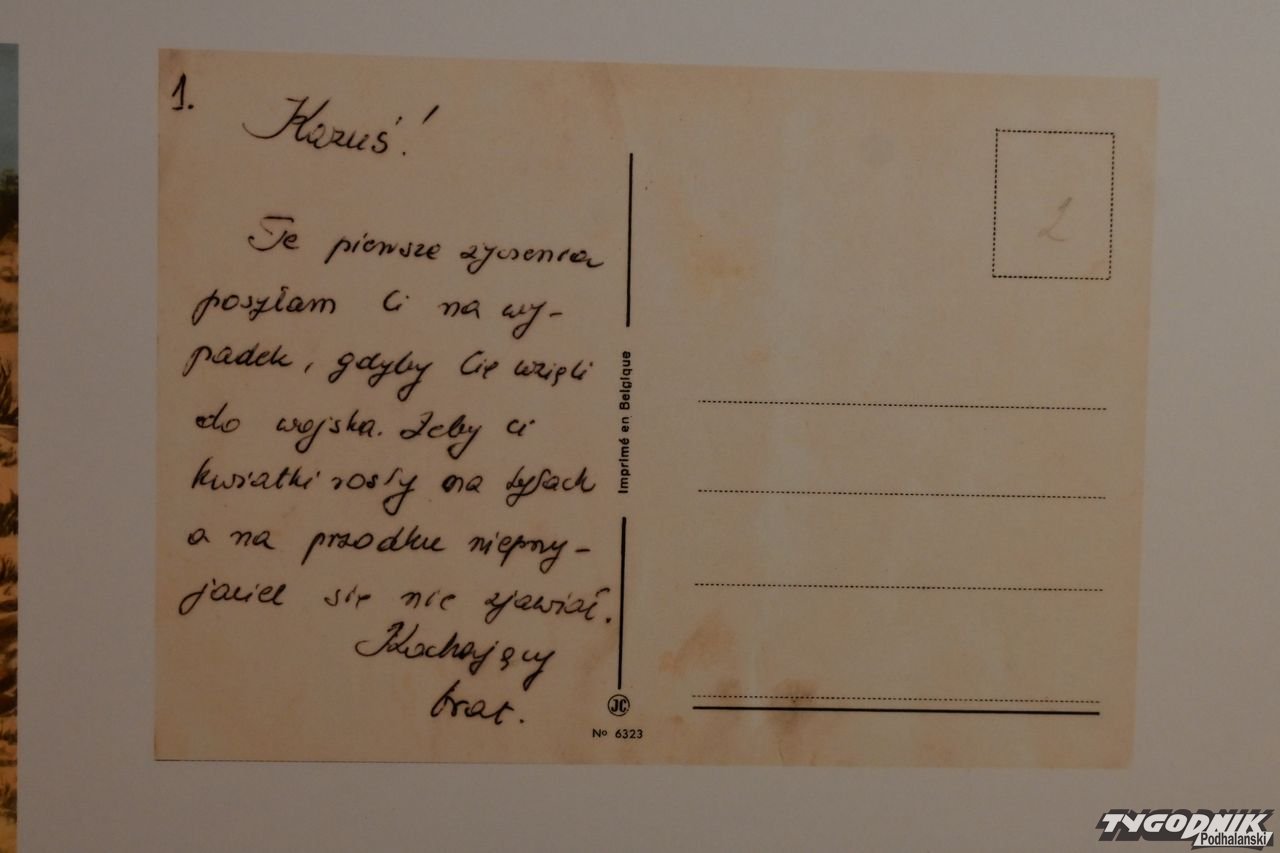 1.
Kazuś!
Te pierwsze życzenia
posyłam Ci na wy-
padek, gdyby Cię wzięli
do wojska. Żeby ci
kwiatki rosły na tyłach
a na przodku nieprzy-
jaciel się nie zjawiał.
Kochający
brat.
Imprimé en Belgique
JC
Nº 6323
2
TYGODNIK
Podhalański